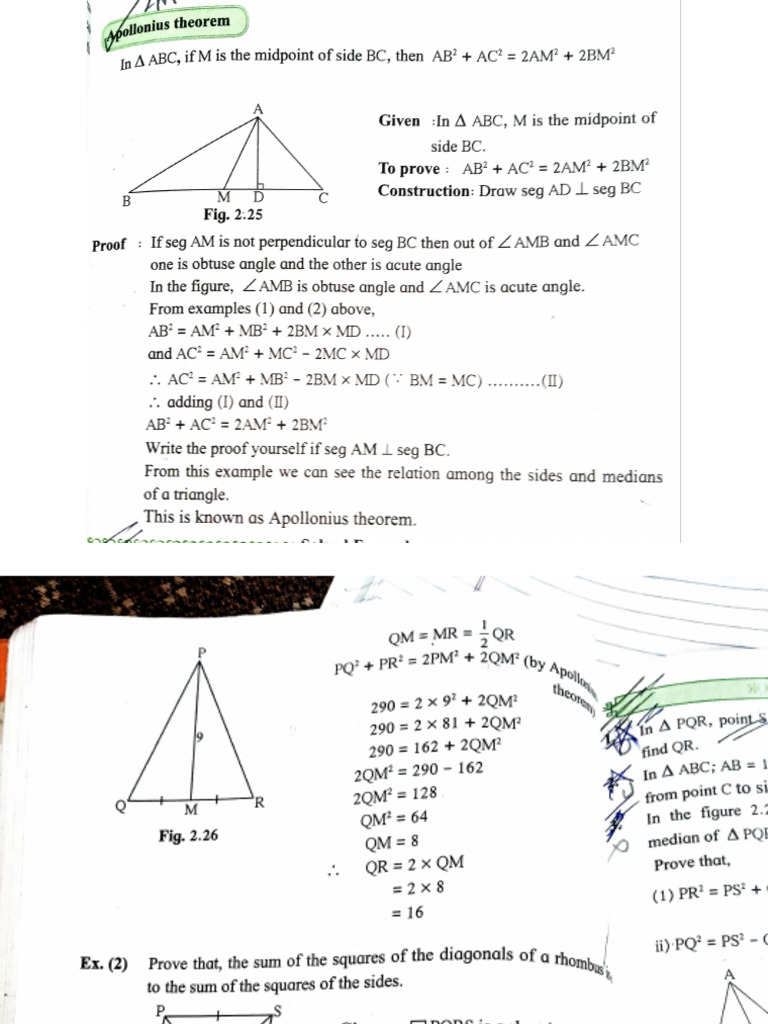 Apollonius theorem
In Δ ABC, if M is the midpoint of side BC, then AB² + AC² = 2AM² + 2BM²
A
B
M
D
C
Fig. 2.25
Given :In Δ ABC, M is the midpoint of
side BC.
To prove : AB² + AC² = 2AM² + 2BM²
Construction: Draw seg AD ⊥ seg BC
Proof : If seg AM is not perpendicular to seg BC then out of ∠AMB and ∠AMC
one is obtuse angle and the other is acute angle
In the figure, ∠AMB is obtuse angle and ∠AMC is acute angle.
From examples (1) and (2) above,
AB² = AM² + MB² + 2BM × MD ..... (I)
and AC² = AM² + MC² − 2MC × MD
∴ AC² = AM² + MB² − 2BM × MD (∵ BM = MC) ..........(II)
∴ adding (I) and (II)
AB² + AC² = 2AM² + 2BM²
Write the proof yourself if seg AM ⊥ seg BC.
From this example we can see the relation among the sides and medians
of a triangle.
This is known as Apollonius theorem.
P
9
Q
M
R
Fig. 2.26
QM = MR = 1/2 QR
PQ² + PR² = 2PM² + 2QM² (by Apollonius
theorem)
290 = 2 × 9² + 2QM²
290 = 2 × 81 + 2QM²
290 = 162 + 2QM²
2QM² = 290 − 162
2QM² = 128
QM² = 64
QM = 8
∴ QR = 2 × QM
= 2 × 8
= 16
Ex. (2) Prove that, the sum of the squares of the diagonals of a rhombus
to the sum of the squares of the sides.
P
S
In Δ PQR, point S
find QR.
In Δ ABC; AB = 1
from point C to si
In the figure 2.2
median of Δ PQR
Prove that,
(1) PR² = PS² +
ii) PQ² = PS² −
A